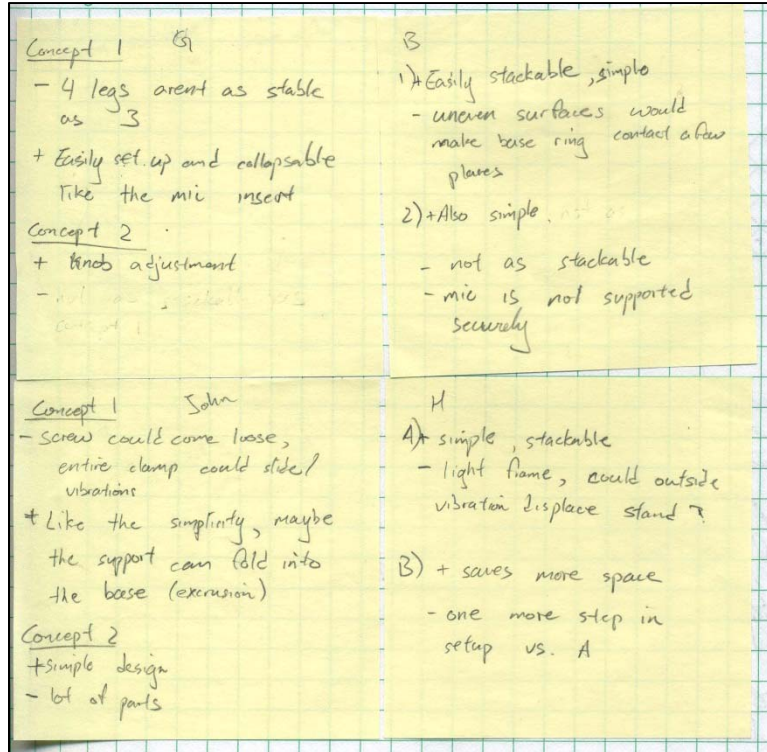 Concept 1 G
- 4 legs arent as stable
as 3
+ Easily set up and collapsable
like the mic insert
Concept 2
+ Knob adjustment
-
B
1)+Easily stackable, simple
- uneven surfaces would
make base ring contact a few
places
2)+Also simple.
- not as stackable
- mic is not supported
securely
Concept 1 John
- Screw could come loose,
entire clamp could slide/
vibrations
+ Like the simplicity, maybe
the support can fold into
the base (excrusion)
Concept 2
+simple design
- lot of parts
H
A)+ simple, stackable
- light frame, could outside
vibration displace stand?
B) + saves more space
- one more step in
setup vs. A